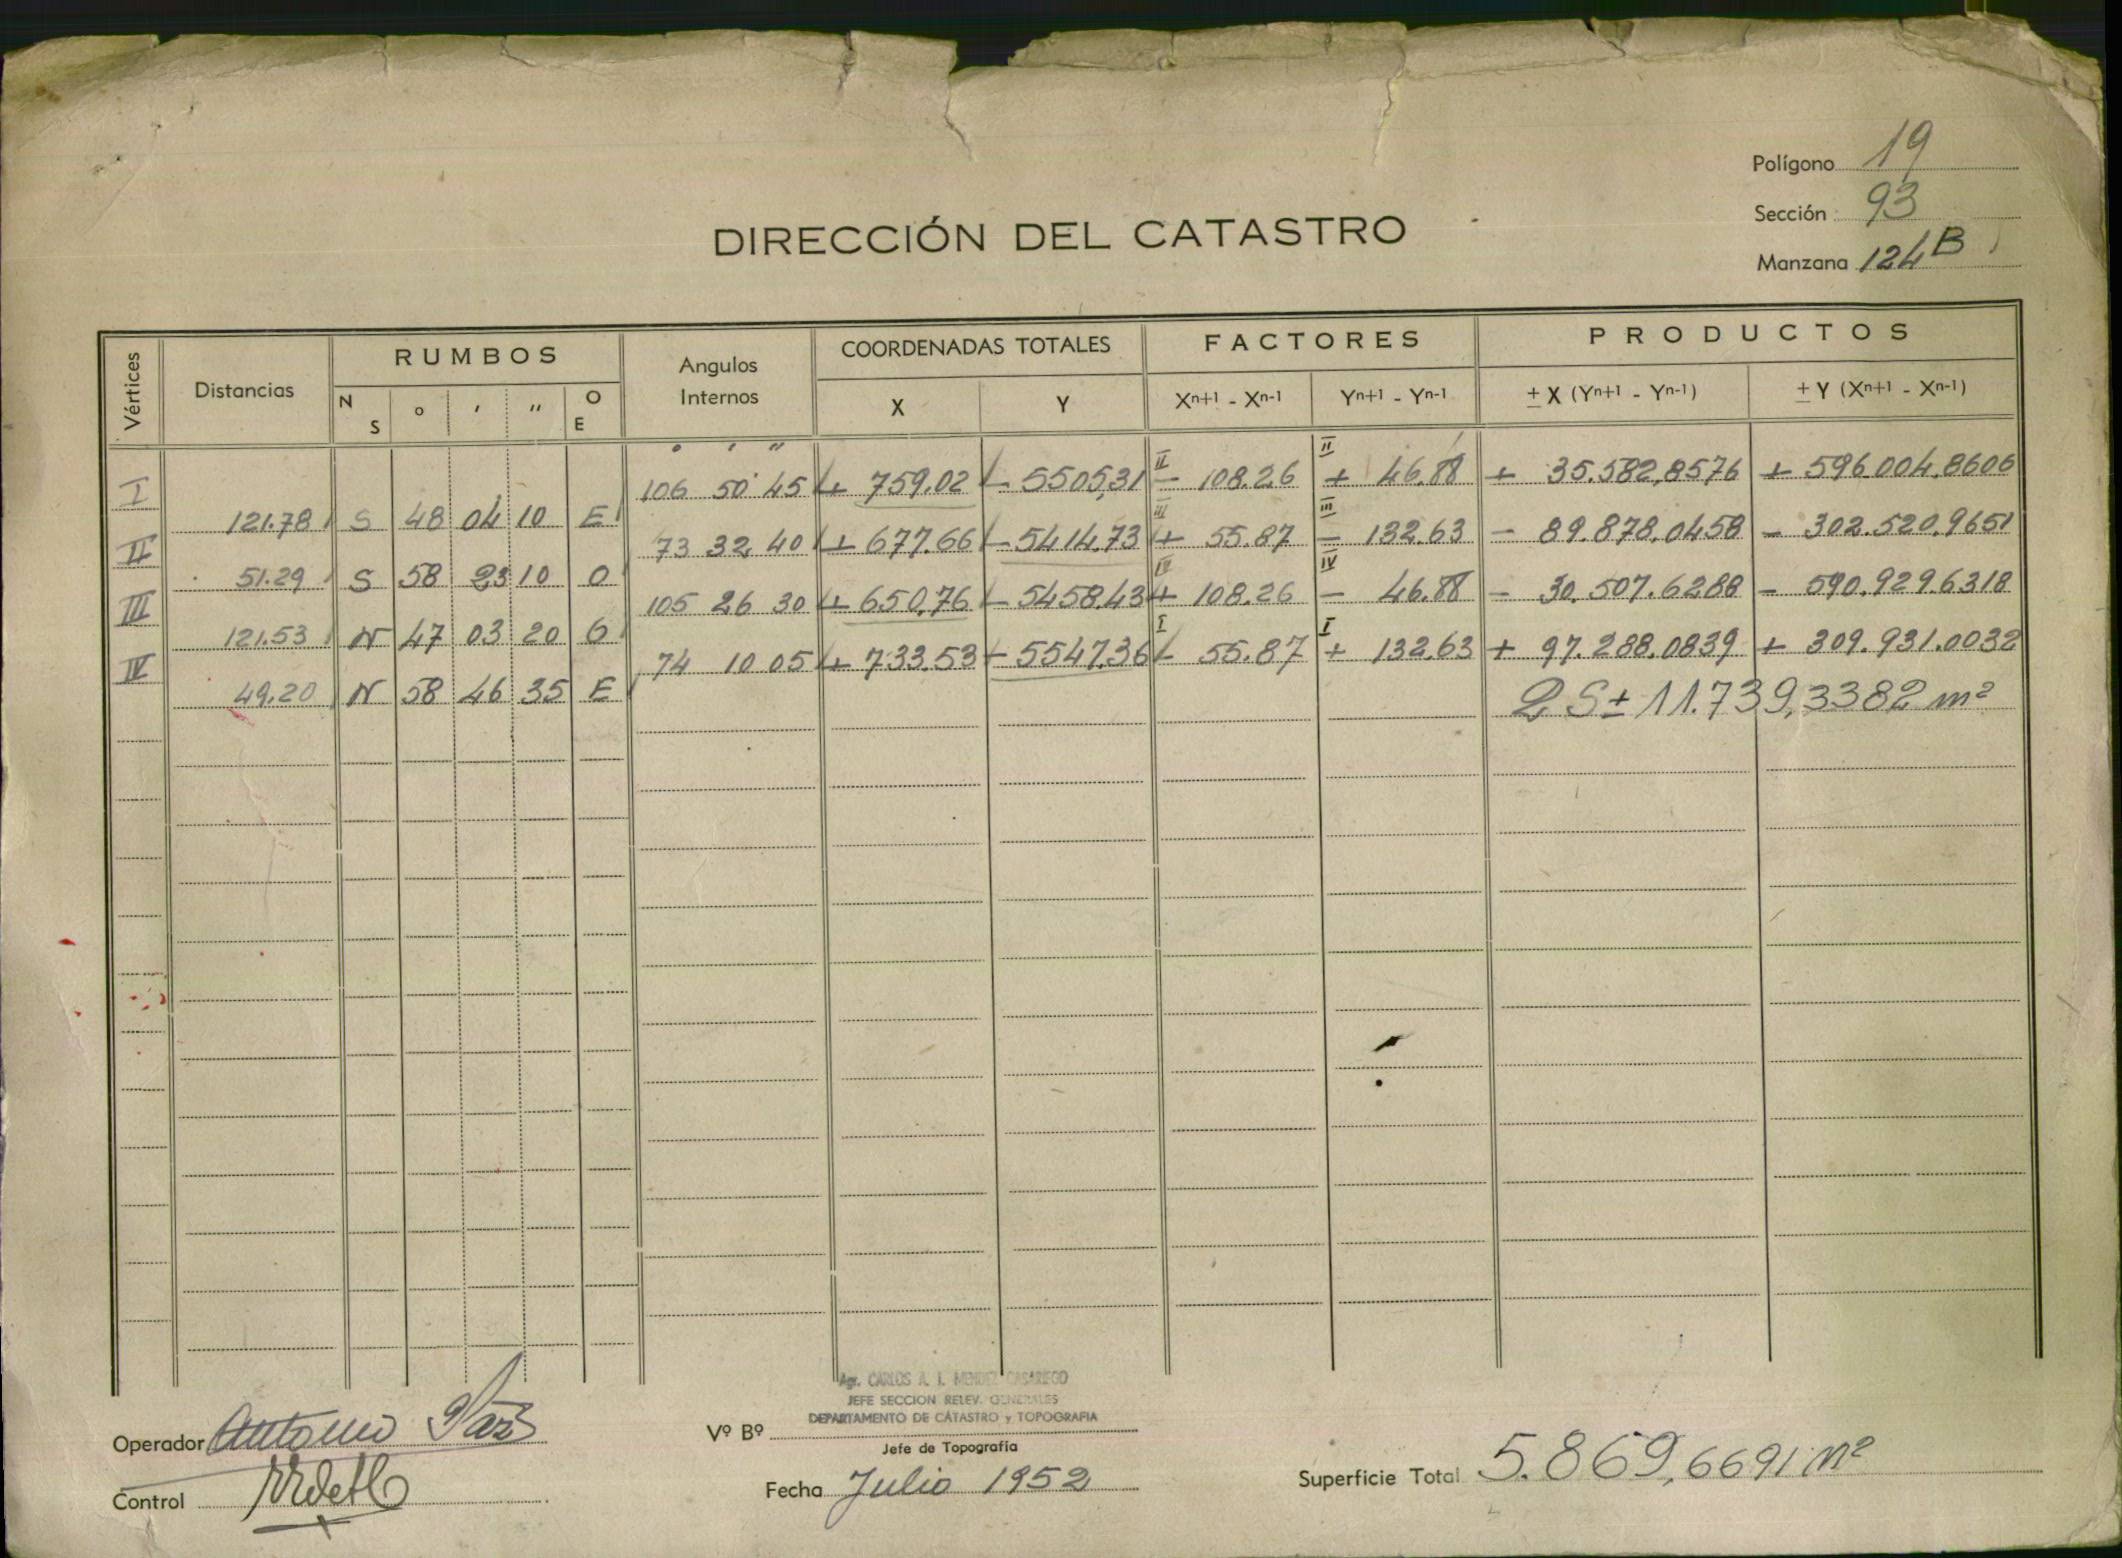 Polígono 19
Sección 93
Manzana 124 B
DIRECCIÓN DEL CATASTRO
Vértices Distancias RUMBOS Angulos Internos COORDENADAS TOTALES FACTORES PRODUCTOS
N S o ' '' O E X Y Xn+1 - Xn-1 Yn+1 - Yn-1 ± X (Yn+1 - Yn-1) ± Y (Xn+1 - Xn-1)
° ' ''
II II
I 106 50 45 + 759.02 - 5505,31 - 108.26 + 46.88 + 35.582,8576 + 596.004.8606
121.78 S 48 04 10 E
III III
II 73 32 40 + 677.66 - 5414.73 + 55.87 - 132.63 - 89.878.0458 - 302.520.9651
51.29 S 58 23 10 O
IV IV
III 105 26 30 + 650,76 - 5458.43 + 108.26 - 46.88 - 30.507.6288 - 590.929.6318
121.53 N 47 03 20 O
I I
IV 74 10 05 + 733.53 - 5547.36 - 55.87 + 132.63 + 97.288.0839 + 309.931.0032
49.20 N 58 46 35 E
2 S ± 11.739,3382 m²
Ag. CARLOS A. I. MENDEZ CASARIEGO
JEFE SECCION RELEV. GENERALES
DEPARTAMENTO DE CATASTRO y TOPOGRAFIA
Operador Antonio
Vº Bº
Jefe de Topografía
Control
Fecha Julio 1952
Superficie Total 5.869,6691 m²